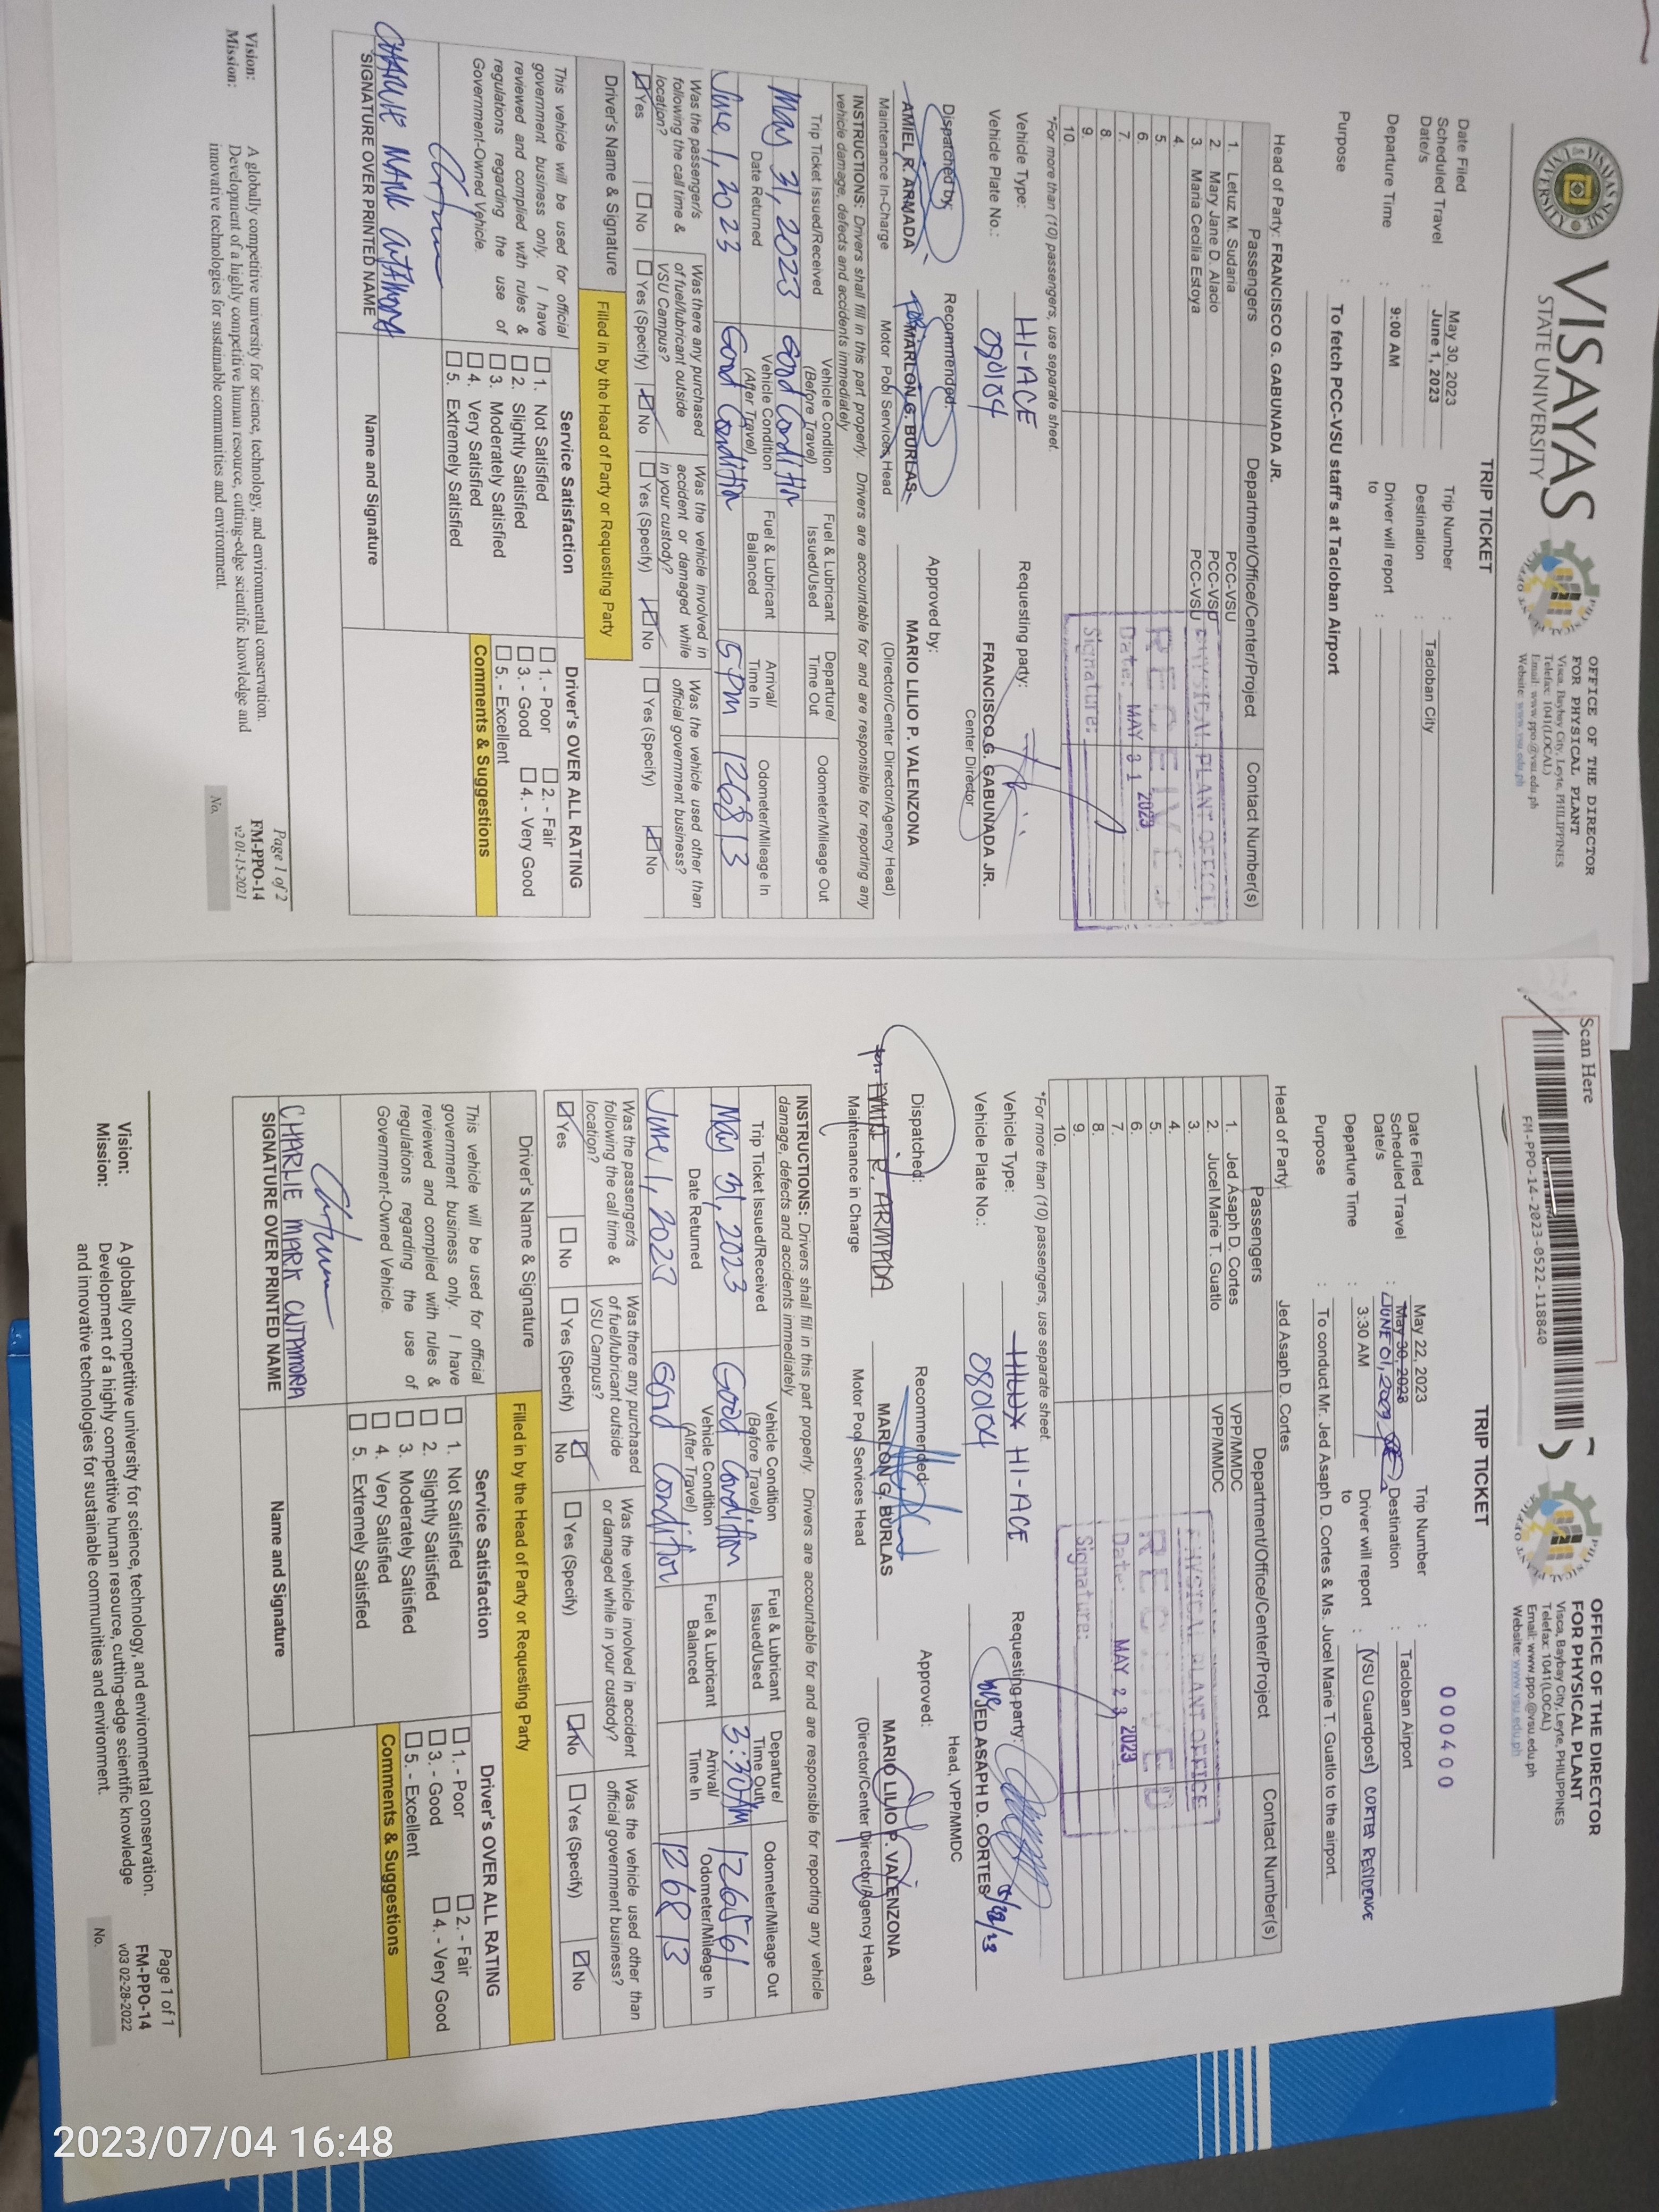 VISAYAS
STATE UNIVERSITY
OFFICE OF THE DIRECTOR
FOR PHYSICAL PLANT
Visca, Baybay City, Leyte, PHILIPPINES
Telefax: 1041(LOCAL)
Email: www.ppo.@vsu.edu.ph
Website: www.vsu.edu.ph
TRIP TICKET
Date Filed : May 30, 2023 Trip Number :
Scheduled Travel Date/s : June 1, 2023 Destination : Tacloban City
Departure Time : 9:00 AM Driver will report to :
Purpose : To fetch PCC-VSU staff's at Tacloban Airport
Head of Party: FRANCISCO G. GABUNADA JR.
Passengers Department/Office/Center/Project Contact Number(s)
1. Letuz M. Sudaria PCC-VSU
2. Mary Jane D. Alacio PCC-VSU
3. Maria Cecilia Estoya PCC-VSU
4.
5.
6.
7.
8.
9.
10.
PHYSICAL PLANT OFFICE
RECEIVED
Date: MAY 31 2023
Signature:
*For more than (10) passengers, use separate sheet.
Vehicle Type: HI-ACE Requesting party:
Vehicle Plate No.: 080104 FRANCISCO G. GABUNADA JR.
Center Director
Dispatched by: Recommended: Approved by:
AMIEL R. ARMADA for MARLON G. BURLAS MARIO LILIO P. VALENZONA
Maintenance In-Charge Motor Pool Services Head (Director/Center Director/Agency Head)
INSTRUCTIONS: Drivers shall fill in this part properly. Drivers are accountable for and are responsible for reporting any
vehicle damage, defects and accidents immediately
Trip Ticket Issued/Received Vehicle Condition (Before Travel) Fuel & Lubricant Issued/Used Departure/ Time Out Odometer/Mileage Out
May 31, 2023 Good Condition
Date Returned Vehicle Condition (After Travel) Fuel & Lubricant Balanced Arrival/ Time In Odometer/Mileage In
June 1, 2023 Good Condition 5pm 126813
Was the passenger/s following the call time & location? Was there any purchased of fuel/lubricant outside VSU Campus? Was the vehicle involved in accident or damaged while in your custody? Was the vehicle used other than official government business?
Yes No Yes (Specify) No Yes (Specify) No Yes (Specify) No
Driver's Name & Signature Filled in by the Head of Party or Requesting Party
This vehicle will be used for official
government business only. I have
reviewed and complied with rules &
regulations regarding the use of
Government-Owned Vehicle.
CHARLIE MARK CUTAMORA
SIGNATURE OVER PRINTED NAME
Service Satisfaction
1. Not Satisfied
2. Slightly Satisfied
3. Moderately Satisfied
4. Very Satisfied
5. Extremely Satisfied
Name and Signature
Driver's OVER ALL RATING
1. - Poor 2. - Fair
3. - Good 4. - Very Good
5. - Excellent
Comments & Suggestions
Vision: A globally competitive university for science, technology, and environmental conservation.
Mission: Development of a highly competitive human resource, cutting-edge scientific knowledge and
innovative technologies for sustainable communities and environment.
Page 1 of 2
FM-PPO-14
v2 01-15-2021
No.
Scan Here
FM-PPO-14-2023-0522-118840
OFFICE OF THE DIRECTOR
FOR PHYSICAL PLANT
Visca, Baybay City, Leyte, PHILIPPINES
Telefax: 1041(LOCAL)
Email: www.ppo.@vsu.edu.ph
Website: www.vsu.edu.ph
TRIP TICKET
000400
Date Filed : May 22, 2023 Trip Number :
Scheduled Travel Date/s : May 30, 2023 JUNE 01, 2023 Destination : Tacloban Airport
Departure Time : 3:30 AM Driver will report to : (VSU Guardpost) CORTES RESIDENCE
Purpose : To conduct Mr. Jed Asaph D. Cortes & Ms. Jucel Marie T. Guatlo to the airport.
Head of Party: Jed Asaph D. Cortes
Passengers Department/Office/Center/Project Contact Number(s)
1. Jed Asaph D. Cortes VPP/MMDC
2. Jucel Marie T. Guatlo VPP/MMDC
3.
4.
5.
6.
7.
8.
9.
10.
PHYSICAL PLANT OFFICE
RECEIVED
Date: MAY 23 2023
Signature:
*For more than (10) passengers, use separate sheet.
Vehicle Type: HILUX HI-ACE Requesting party:
Vehicle Plate No.: 080104 JED ASAPH D. CORTES 5/22/23
Head, VPP/MMDC
Dispatched: Recommended: Approved:
for: AMIEL R. ARMADA MARLON G. BURLAS MARIO LILIO P. VALENZONA
Maintenance in Charge Motor Pool Services Head (Director/Center Director/Agency Head)
INSTRUCTIONS: Drivers shall fill in this part properly. Drivers are accountable for and are responsible for reporting any vehicle
damage, defects and accidents immediately
Trip Ticket Issued/Received Vehicle Condition (Before Travel) Fuel & Lubricant Issued/Used Departure/ Time Out Odometer/Mileage Out
May 31, 2023 Good Condition 3:30AM 126561
Date Returned Vehicle Condition (After Travel) Fuel & Lubricant Balanced Arrival/ Time In Odometer/Mileage In
June 1, 2023 Good Condition 126813
Was the passenger/s following the call time & location? Was there any purchased of fuel/lubricant outside VSU Campus? Was the vehicle involved in accident or damaged while in your custody? Was the vehicle used other than official government business?
Yes No Yes (Specify) No Yes (Specify) No Yes (Specify) No
Driver's Name & Signature Filled in by the Head of Party or Requesting Party
This vehicle will be used for official
government business only. I have
reviewed and complied with rules &
regulations regarding the use of
Government-Owned Vehicle.
CHARLIE MARK CUTAMORA
SIGNATURE OVER PRINTED NAME
Service Satisfaction
1. Not Satisfied
2. Slightly Satisfied
3. Moderately Satisfied
4. Very Satisfied
5. Extremely Satisfied
Name and Signature
Driver's OVER ALL RATING
1. - Poor 2. - Fair
3. - Good 4. - Very Good
5. - Excellent
Comments & Suggestions
Vision: A globally competitive university for science, technology, and environmental conservation.
Mission: Development of a highly competitive human resource, cutting-edge scientific knowledge
and innovative technologies for sustainable communities and environment.
Page 1 of 1
FM-PPO-14
v03 02-28-2022
No.
2023/07/04 16:48